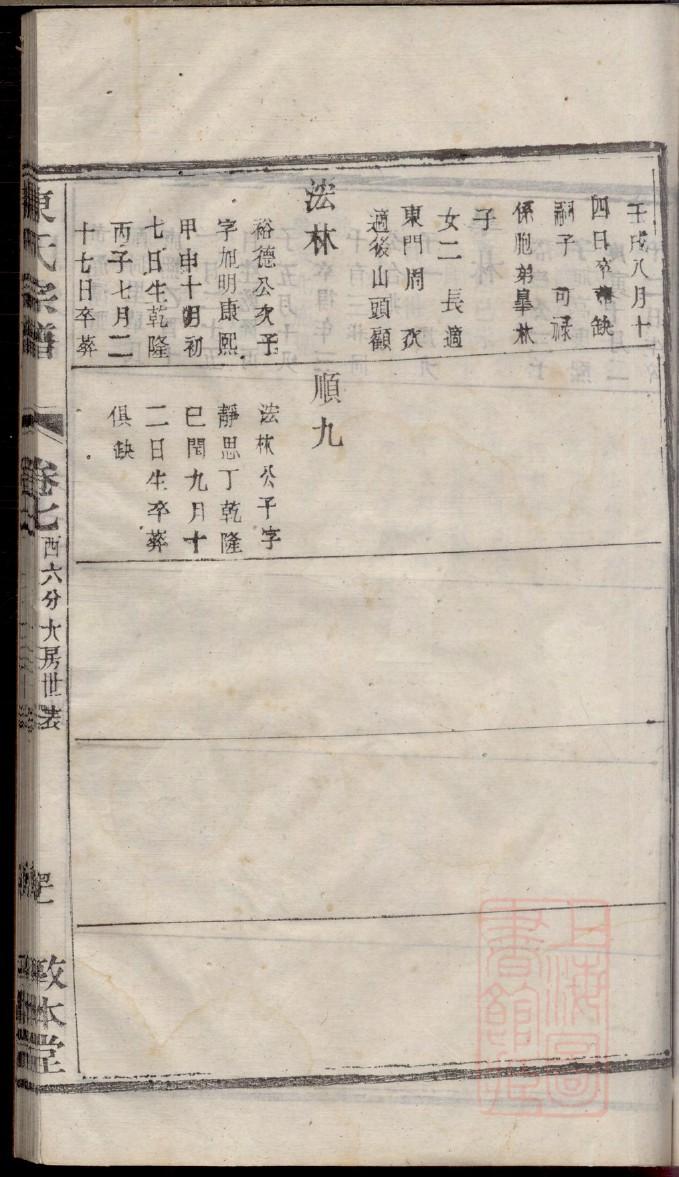 壬戌八月十
四日卒葬缺
嗣子可禄
係胞弟臯林
子
女二長適
東門周次
適後山頭顧
法林
裕德公次子
字旭明康熙
甲申十月初
七日生乾隆
丙子七月二
十七日卒葬
順九
法林公子字
靜思丁乾隆
巳閏九月十
二日生卒葬
俱缺
氏宗譜
卷七
西六分大房世表
敦本堂
上海圖
書館